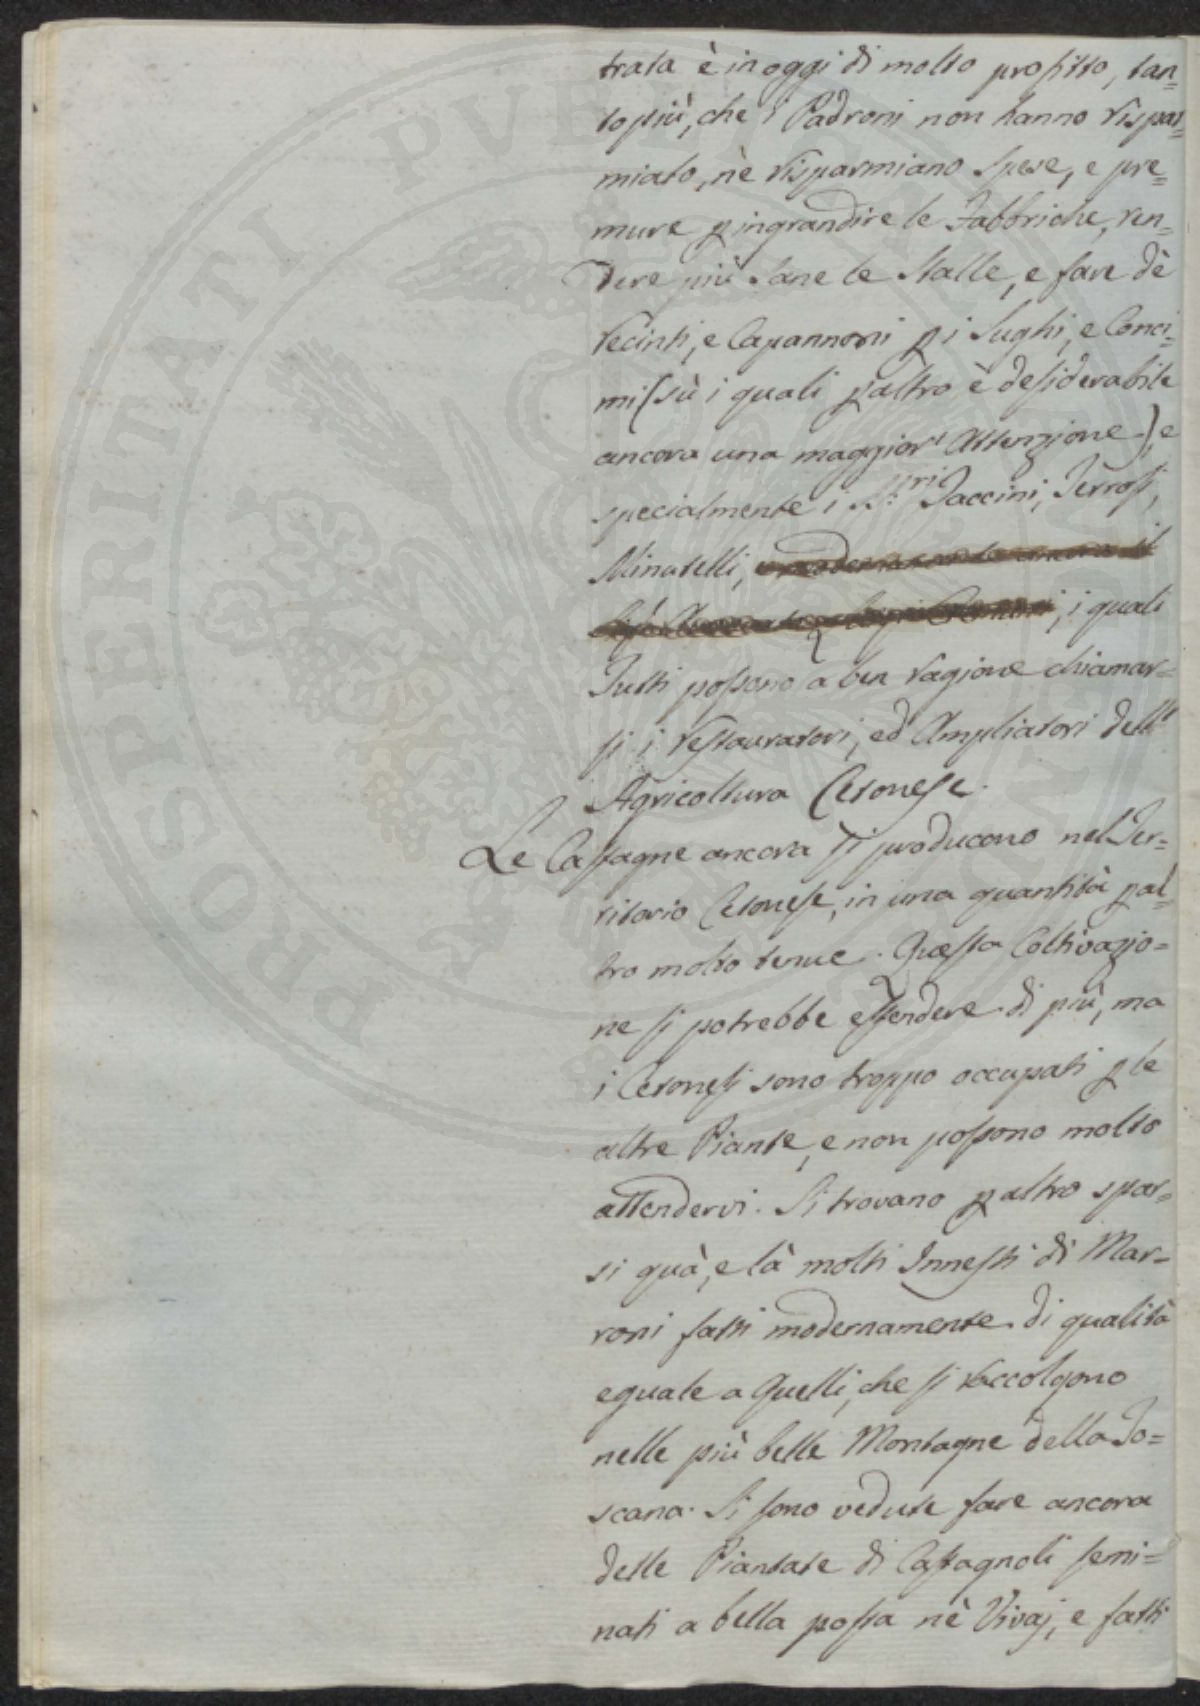 trata è in oggi di molto profitto, tan=
to più, che i Padroni non hanno rispar=
miato, nè risparmiano spese, e pre=
mure p ingrandire le Fabbriche, ren=
dere più sane le Stalle, e fare dè
recinti, e Capannoni p i sughi, e Conci=
mi (sù i quali p altro è desiderabile
ancora una maggior' Attenzione), e
specialmente i SS.ri Taccini, Terrosi,
Minatelli,
, i quali
Tutti possono a ben ragione chiamar=
si i restauratori, ed Ampliatori dell'
Agricoltura Cetonese.
Le Castagne ancora si producono nel Ter=
ritorio Cetonese, in una quantità p al=
tro molto tenue. Questa Coltivazio=
ne si potrebbe estendere di più, ma
i Cetonesi sono troppo occupati p le
altre Piante, e non possono molto
attendervi. Si trovano p altro spar=
si quà, e là molti Innesti di Mar=
roni fatti modernamente di qualità
eguale a Quelli, che si raccolgono
nelle più belle Montagne della To=
scana. Si sono vedute fare ancora
delle Piantate di Castagnoli semi=
nati a bella posta nè Vivaj, e fatti
PROSPERITATI PVBLICAE